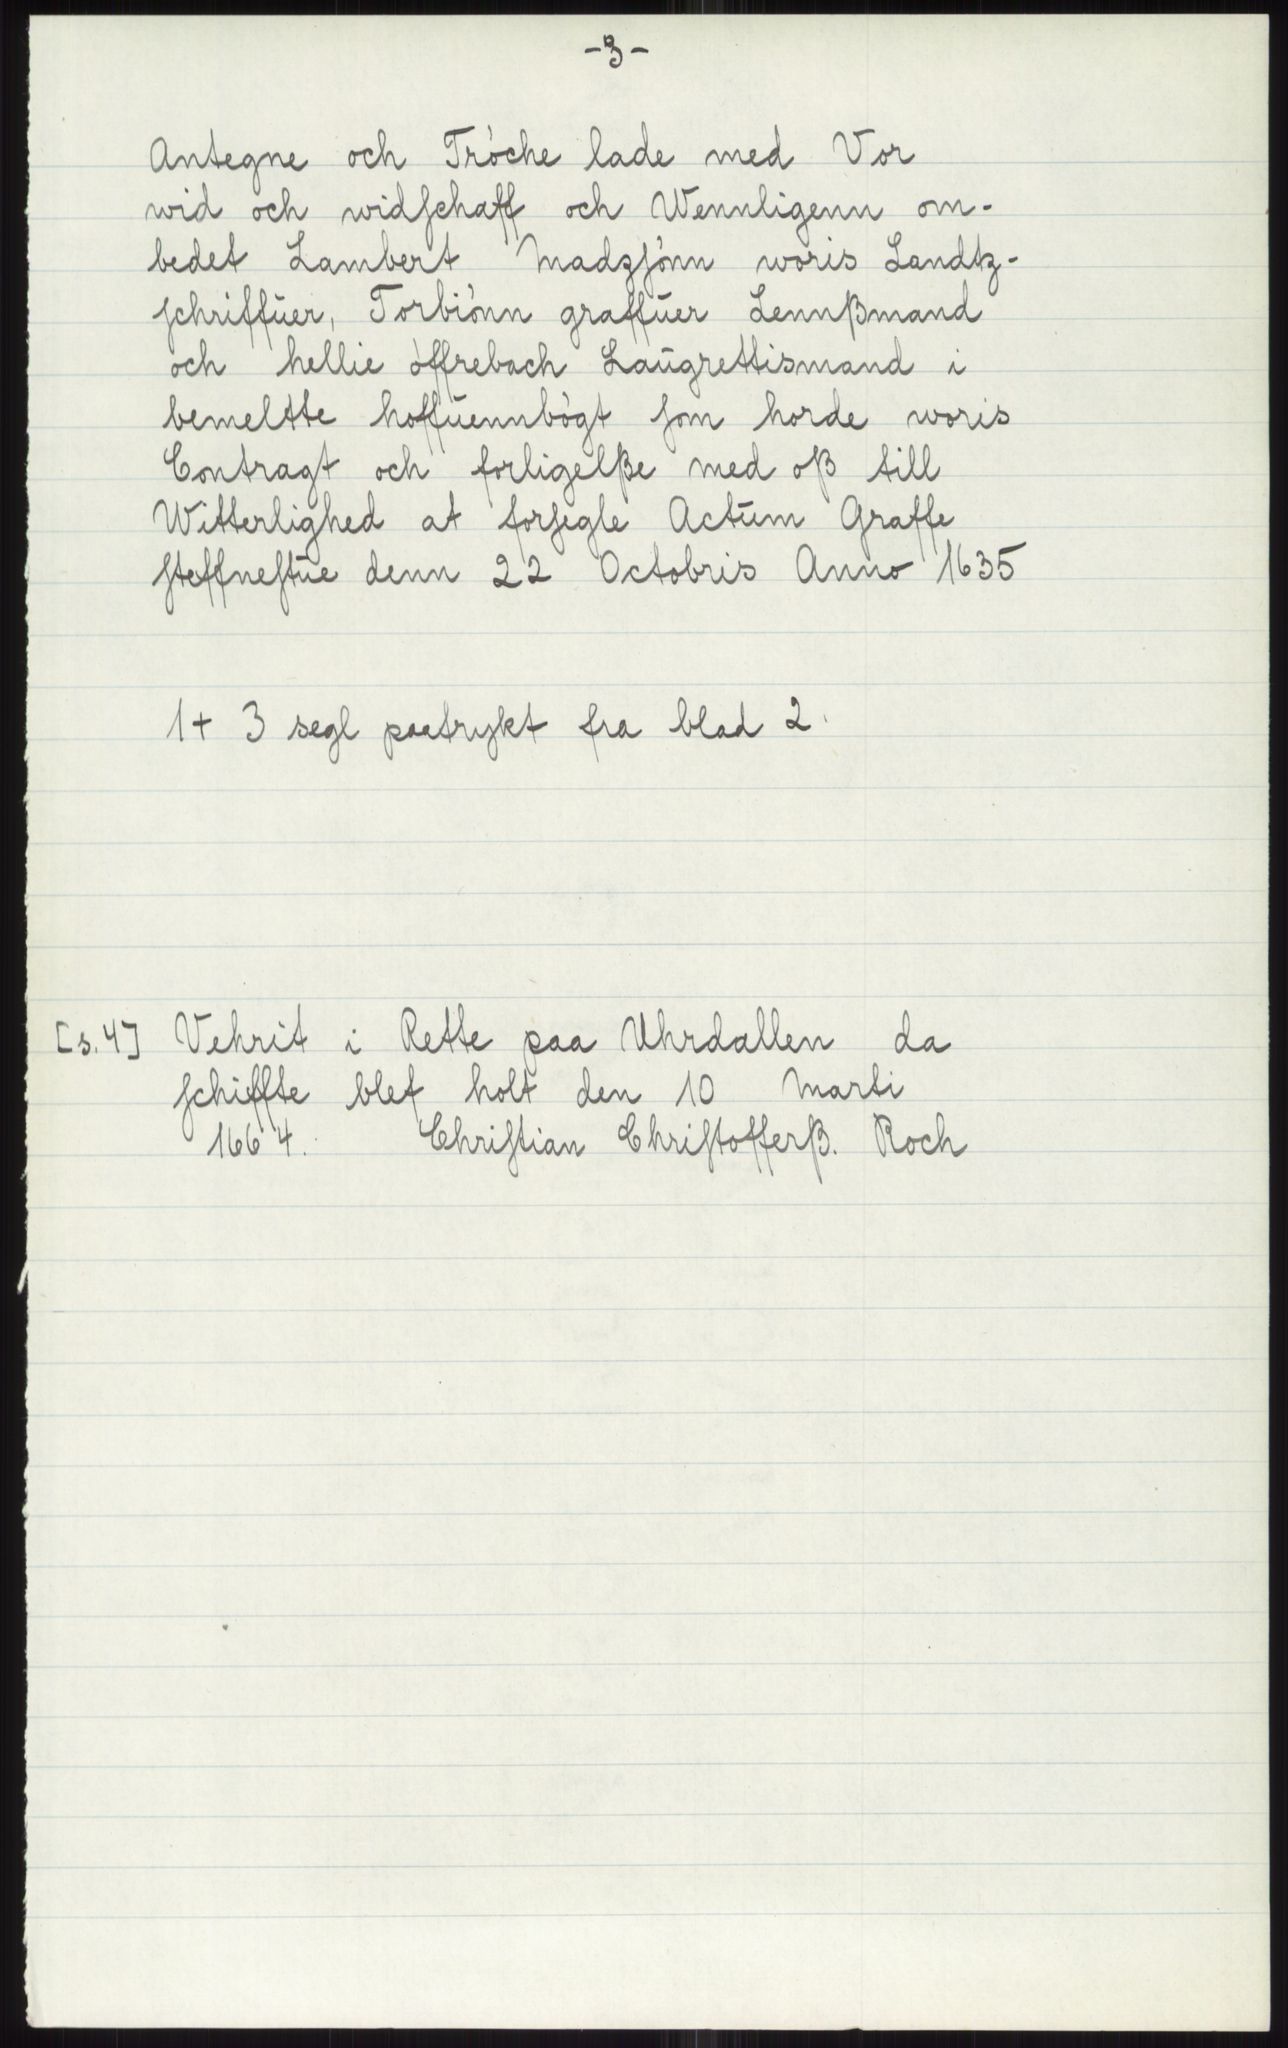 -3-
Antegne och Tröche lade med Vor
wid och widſchaff och Wennligenn om-
bedet Lambert Madzſönn woris Landtz-
ſchriffůer, Torbiönn graffůer Lennßmand
och hellie öffrebach Laůgrettismand i
bemeltte hoffůennbögt ſom horde woris
Contragt och forligelße med oß till
Witterlighed at forſegle Actům Graffe
ſteffneſtůe denn 22 Octobris Anno 1635
1+ 3 segl paatrykt fra blad 2.
[s. 4] Vehrit i Rette paa Uhrdallen da
ſchiffte blef holt den 10 Marti
1664. Chriſtian Chriſtofferß. Roch